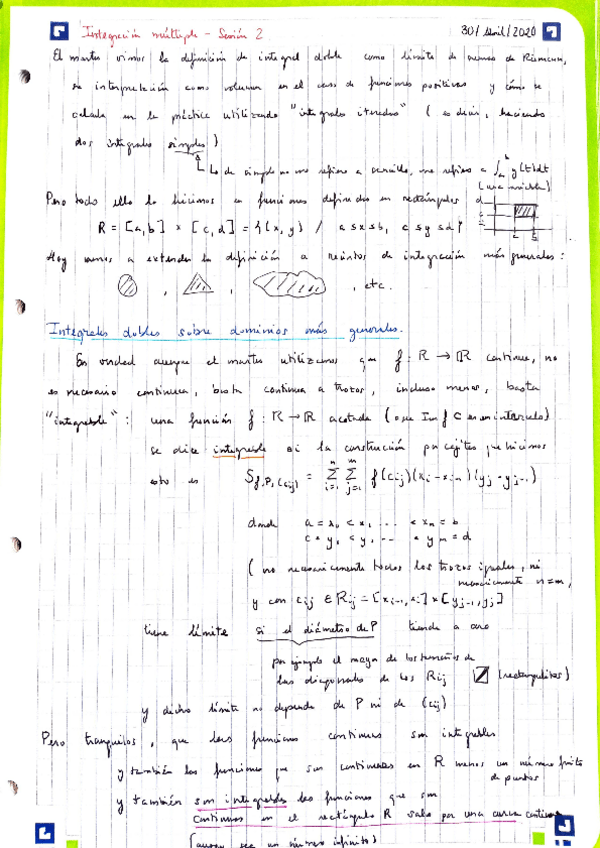 Integración múltiple - Sesión 2 30/abril/2020
El martes vimos la definición de integral doble como límite de sumas de Riemann,
su interpretación como volumen en el caso de funciones positivas y cómo se
calcula en la práctica utilizando "integrales iteradas" (es decir, haciendo
dos integrales simples)
Lo de simple no me refiero a sencillo, me refiero a ∫ₐᵇ g(t)dt
(una variable)
Pero todo ello lo hicimos en funciones definidas en rectángulos
R = [a,b] × [c,d] = {(x,y) / a ≤ x ≤ b, c ≤ y ≤ d}
Hoy vamos a extender la definición a recintos de integración más generales:
, , , etc.
Integrales dobles sobre dominios más generales.
En verdad aunque el martes utilizamos que f: R → ℝ continua, no
es necesario continua, basta continua a trozos, incluso menos, basta
"integrable": una función f: R → ℝ acotada (o sea Im f ⊂ en un intervalo)
se dice integrable si la construcción por cajitas que hicimos
esto es S_{f,P,(cij)} = Σ_{i=1}^{n} Σ_{j=1}^{m} f(cij)(xi - xi-1)(yj - yj-1)
donde a = x₀ < x₁ ... < xn = b
c = y₀ < y₁ ... < ym = d
(no necesariamente todos los trozos iguales, ni
necesariamente n = m,
y con cij ∈ Rij = [xi-1, xi] × [yj-1, yj]
tiene límite si el diámetro de P tiende a cero
por ejemplo el mayor de los tamaños de
las diagonales de los Rij (rectangulitos)
y dicho límite no depende de P ni de (cij)
Pero tranquilos, que las funciones continuas son integrables
y también las funciones que son continuas en R menos un número finito
de puntos
y también son integrables las funciones que son
continuas en el rectángulo R salvo por una curva continua
(aunque sea un número infinito)